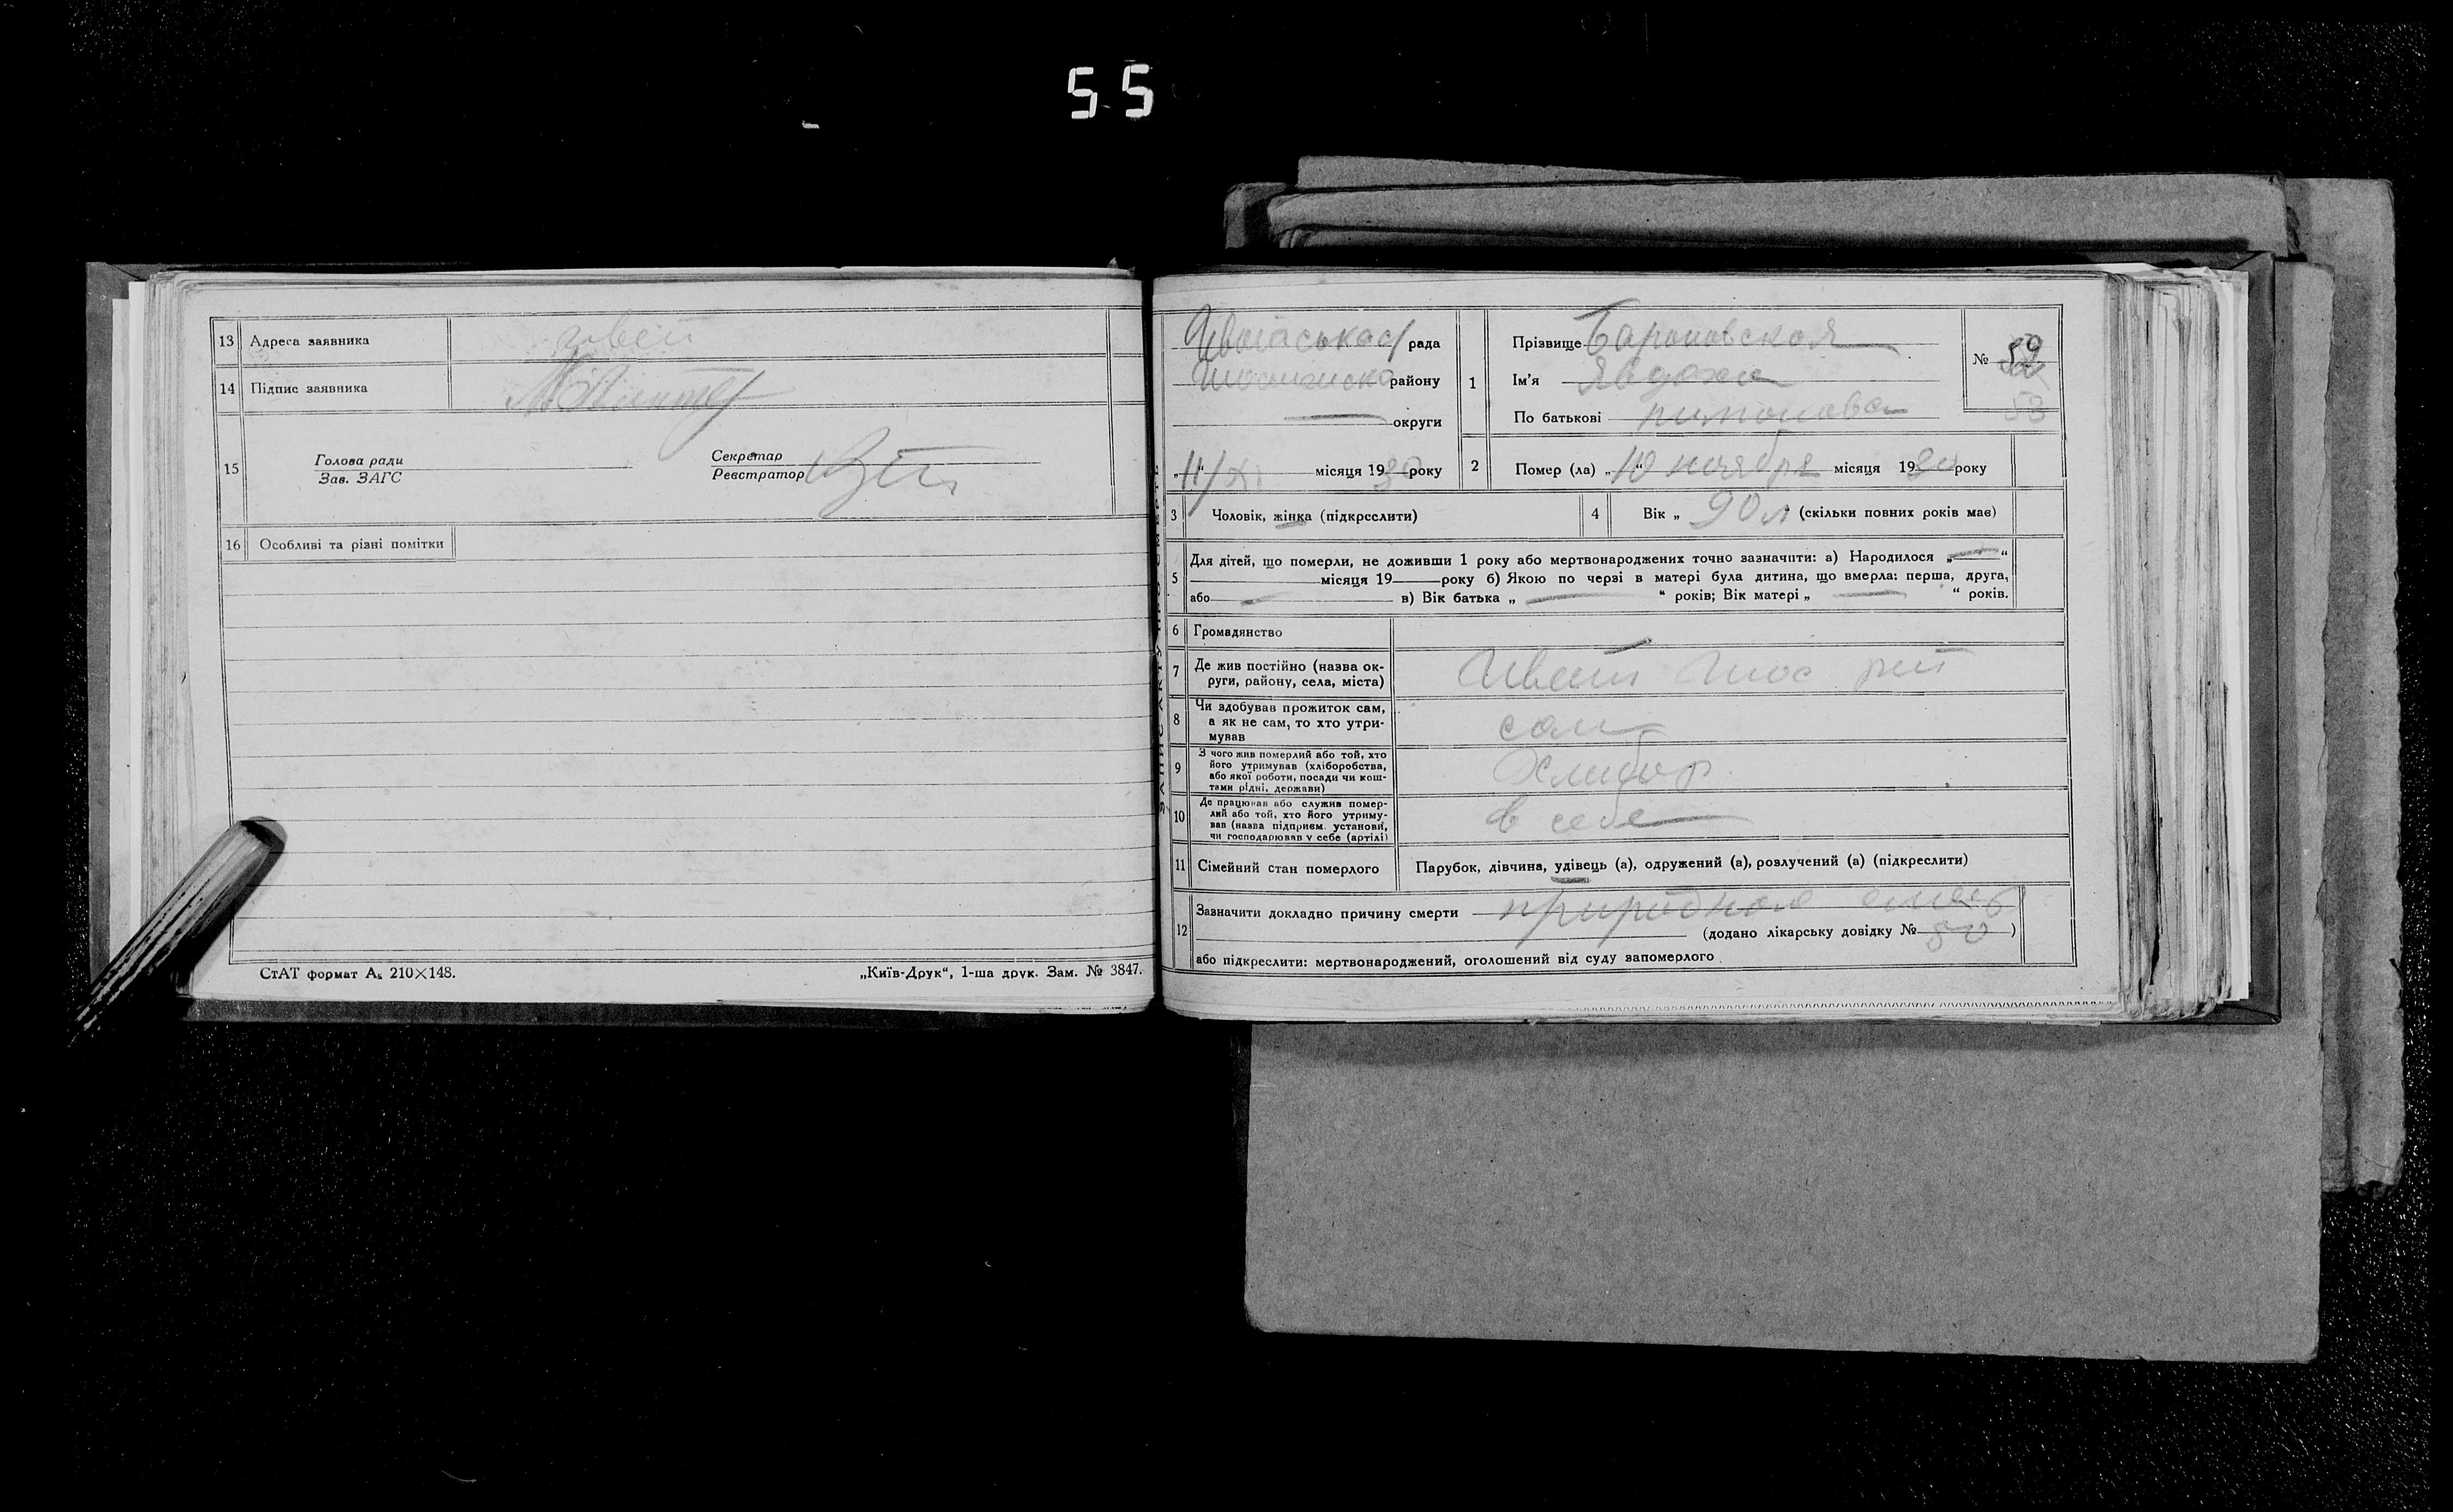 55
13 Адреса заявника
14 Підпис заявника
15 Голова ради
Зав. ЗАГС
Секретар
Реєстратор
16 Особливі та різні помітки
СтАТ формат А₅ 210×148.
„Київ-Друк“, 1-ша друк. Зам. № 3847.
рада
району
округи
„11/XI місяця 1930 року
1 Прізвище Бароновская
Ім'я Явдоха
По батькові
№ 52
53
2 Помер (ла) „10 ноября місяця 1930 року
3 Чоловік, жінка (підкреслити)
4 Вік „ 90 л (скільки повних років має)
5 Для дітей, що померли, не доживши 1 року або мертвонароджених точно зазначити: а) Народилося „ “
місяця 19 року б) Якою по черзі в матері була дитина, що вмерла: перша, друга,
або в) Вік батька „ “ років; Вік матері „ “ років.
6 Громадянство
7 Де жив постійно (назва ок-
руги, району, села, міста)
8 Чи здобував прожиток сам,
а як не сам, то хто утри-
мував
сам
9 З чого жив померлий або той, хто
його утримував (хліборобства,
або якої роботи, посади чи кош-
тами рідні, держави)
Хлибор
10 Де працював або служив помер-
лий або той, хто його утриму-
вав (назва підприєм. установи,
чи господарював у себе (артілі)
в себе
11 Сімейний стан померлого Парубок, дівчина, удівець (а), одружений (а), розлучений (а) (підкреслити)
12 Зазначити докладно причину смерти природная
(додано лікарську довідку № 50 )
або підкреслити: мертвонароджений, оголошений від суду запомерлого.